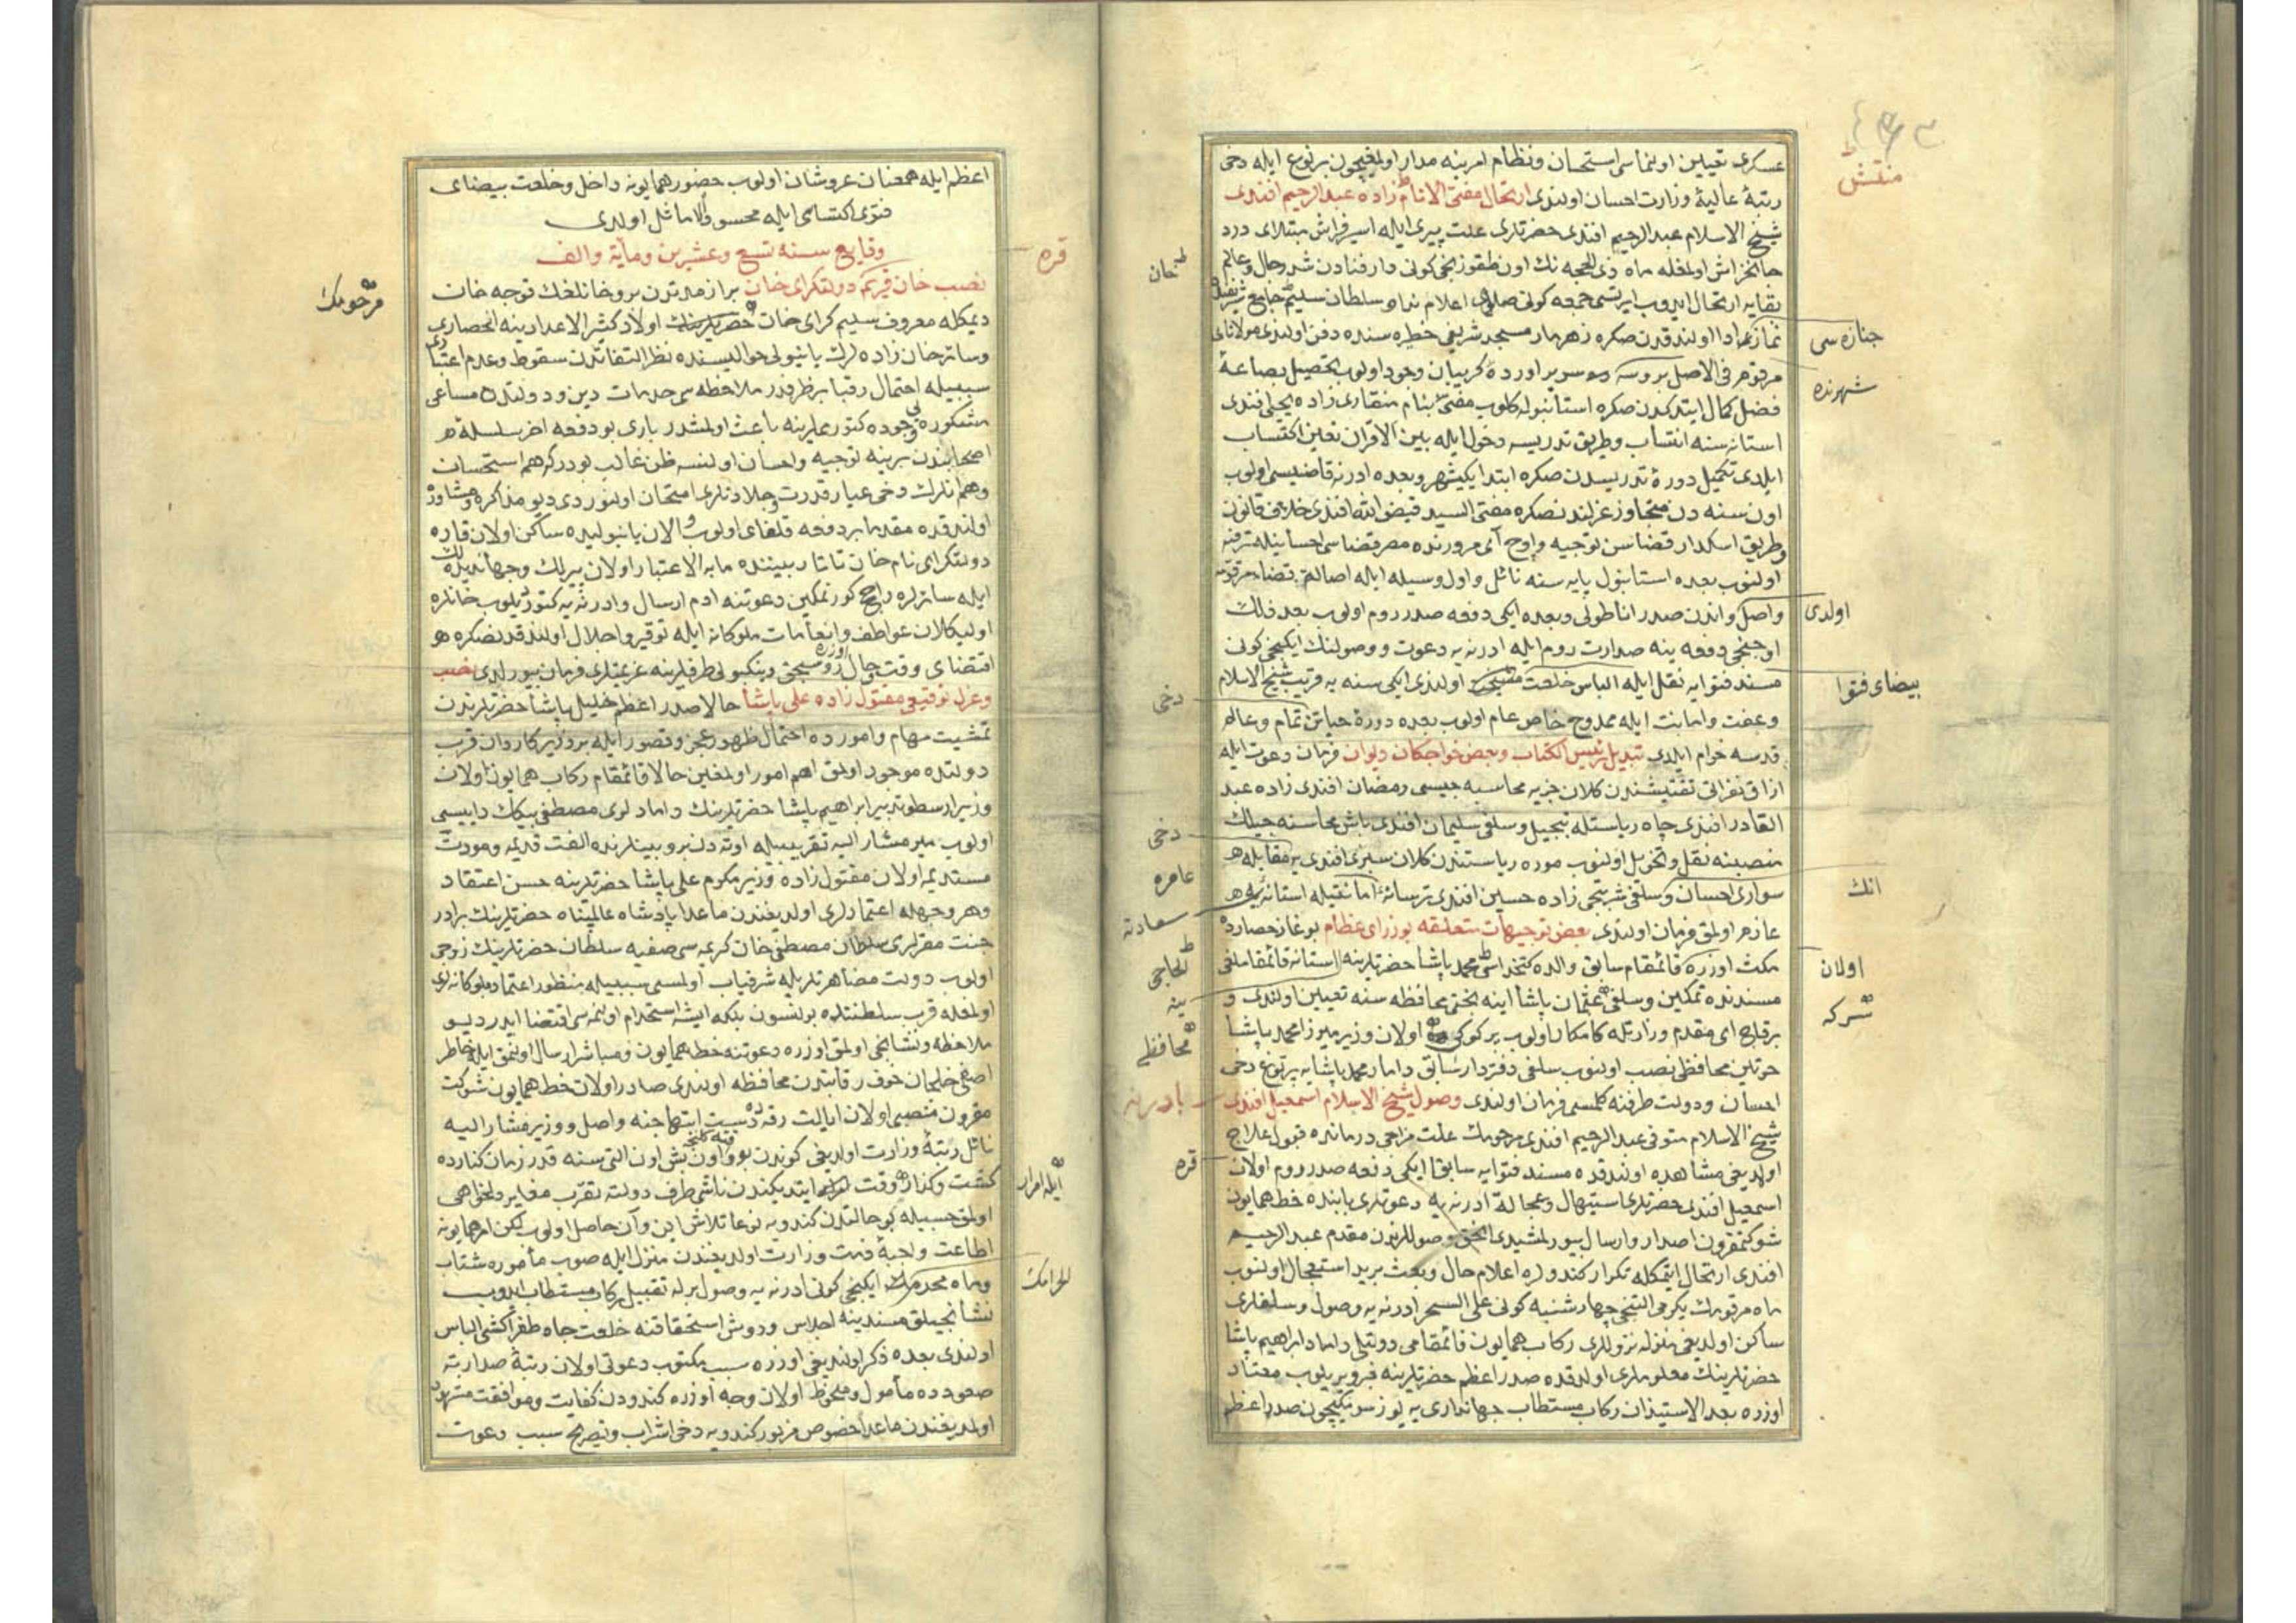 عسكری تعيين اولنماسی استحسان ونظام امرينه مدار اولمغيچون بر توغ ايله دخی
رتبۀ عاليۀ وزارت احسان اولندی ارتحال مفتی الانام زاده عبدالرحيم افندی
شيخ الاسلام عبدالرحيم افندی حضرتلری علت پيری ايله اسير فراش مبتلای درد
جانخراش اولمغله ماه ذی الحجه نك اون طقوزنجی كونی دار فنادن شد رحال وعالم
بقايه ارتحال ايدوب ايرتسی جمعه كونی اعلام سلطان سليم جامع شريفنده
نمازی ادا اولندقدن صكره زهرمار مسجد شريفی حظيره سنده دفن اولندی مولانای
مرقوم فی الاصل بروسه اوردۀ كريبان وجود اولوب تحصيل بضاعۀ
فضل كمال ايتدكدن صكره استانبوله كلوب مفتی بنام منقاری زاده يحيی افندی
استانه سنه انتساب وطريق تدريسه دخول ايله بين الاقران تعين اكتساب
ايلدی تكميل دورۀ تدريسدن صكره ابتدا يكيشهر وبعده ادرنه قاضيسی اولوب
اون سنه دن متجاوز عزلندنصكره مفتی السيد فيض الله افندی خلاف قانون
وطريق اسكدار قضاسن توجيه واوج آی مرورنده مصر قضاسی احسانيله ترفيه
اولنوب بعده استانبول پايه سنه نائل واول وسيله ايله اصالة قضاء مرقومه
واصل واندن صدر اناطولی وبعده ايكی دفعه صدر روم اولوب بعد ذلك
اوجنجی دفعه ينه صدارت روم ايله ادرنه يه دعوت ووصولنك ايكنجی كونی
مسند فتوايه نقل ايله الباس خلعت اولندی ايكی سنه يه قريب شيخ الاسلام
وعفت وامانت ايله ممدوح خاص عام اولوب بعده دورۀ حياتن تمام وعالم
قدسه خرام ايلدی تبديل رئيس الكتاب وبعض خواجكان ديوان فرمان دعوت ايله
ازاق نفراتی تفتيشندن كلان جزيه محاسبه جيسی رمضان افندی زاده عبد
القادر افندی جاه رياستله تبجيل وسلفی سليمان افندی باش محاسبه جيلك
منصبنه نقل وتحويل اولنوب موره رياستندن كلان سيری افندی يه مقابلۀ
سواری احسان وسلفی شربتجی زاده حسين افندی ترسانه امانتيله استانه يه
عازم اولمق فرمان اولندی بعض توجيهات متعلقه بوزرای عظام بوغاز حصارده
مكث اوزره قائمقام سابق والده كتخداسی محمد پاشا حضرتلرينه استانه قائمقاملغی
مسندنده تمكين وسلفی عثمان پاشا اينه بختی محافظه سنه تعيين اولندی و
برقاج ای مقدم وزارتله كامكار اولوب بركوكی اولان وزير ميرزا محمد پاشا
خوتين محافظی نصب اولنوب سلفی دفتردار سابق داماد محمد پاشايه بر توغ دخی
احسان ودولت طرفنه كلمسی فرمان اولندی وصول شيخ الاسلام اسمعيل افندی
شيخ الاسلام متوفی عبدالرحيم افندی مرحومك علت مزاجی درمانده قبول علاج
اولديغی مشاهده اولندقده مسند فتوايه سابقا ايكی دفعه صدر روم اولان
اسمعيل افندی حضرتلری استيهال وعجالة ادرنه يه دعوتلری بابنده خط همايون
شوكتمقرون اصدار وارسال بيورلمشيدی وصوللرندن مقدم عبدالرحيم
افندی ارتحال ايتمكله تكرار كندولره اعلام حال وبعث بريد استعجال اولنوب
ماه مرقومك يكرمی التنجی چهارشنبه كونی علی السحر ادرنه يه وصول وسلفلری
ساكن اولديغی منزله نزوللری ركاب همايون قائمقامی دولتلی داماد ابراهيم پاشا
حضرتلرينك معلوملری اولدقده صدر اعظم حضرتلرينه خبر ويريلوب معتاد
اوزره بعد الاستيذان ركاب مستطاب جهانداری يه يوز سورمكيچون صدر اعظم
منقش
جنازه سی
شهرنده
اولدی
بيضای فتوا
انك
اولان
دخی
دخی
عامره
سعادته
الحاجی
ينه
محافظی
بادرنه
قره
اعظم ايله همعنان عز وشان اولوب حضور همايونه داخل وخلعت بيضای
فتوی اكتساسی ايله محسود الاماثل اولدی
وقايع سنه تسع وعشرين ومأية والف
نصب خان قريم دولتكرای خان بر ازمدتدن برو خانلغك توجه خان
ديمكله معروف سليم كرای خان اولاد كثير الاعدادينه انحصاری
وسائر خان زاده لرك يانبولی حواليسنده نظر التفاتدن سقوط وعدم اعتباری
سببيله احتمال رقبا بر ظرفدر ملاحظه سی خدمات دين ودولتده مساعی
مشكوره وجوده كتورملرينه باعث اولمشدر باری بو دفعه اخر سلسله
اصحابندن برينه توجيه واحسان اولنسه ظن غالب بودركه هم استحسان
وهم انلرك دخی عيار قدرت وجلادتلری امتحان اولنوردی ديو مذاكره ومشاوره
اولندقده مقدما بر دفعه قلغای اولوب والان يانبوليده ساكن اولان قاره
دولتكرای نام خان تاتار بيننده مابه الاعتبار اولان پيرلك وجهانديده لك
ايله سائرلره راجح كورنمكين دعوتنه ادم ارسال وادرنه يه كتوريلوب خانلره
اوليكلان عواطف وانعامات ملوكانه ايله توقير واجلال اولندقدنصكره
اقتضای وقت وحال اوزره وينكبولی طرفلرينه عزيمتلری فرمان بيورلدی نصب
وعزل توقيعی مقتول زاده علی پاشا حالا صدر اعظم خليل پاشا حضرتلرندن
تمشيت مهام وامورده احتمال ظهور عجز وقصور ايله بر وزير كاردان قرب
دولتده موجود اولمق اهم امور اولمغين حالا قائمقام ركاب همايون اولان
وزير ارسطوتدبير ابراهيم پاشا حضرتلرينك دامادلری مصطفی بيك داييسی
اولوب مير مشار اليه تقريبيله اوته دنبرو بينلرنده الفت قديمه ومودت
مستديمه اولان مقتول زاده وزير مكرم علی پاشا حضرتلرينه حسن اعتقاد
وهر وجهله اعتمادلری اولديغندن ماعدا پادشاه عالمپناه حضرتلرينك برادر
جنت مقرلری سلطان مصطفی خان كريمه سی صفيه سلطان حضرتلرينك زوجی
اولوب دولت مصاهرتلريله شرفياب اولمسی سببيله منظور اعتماد ملوكانه لری
اولمغله قرب سلطنتنده بولنسون بلكه ايشه استخدام اولنمه سی اقتضا ايدر ديو
ملاحظه ونشانجی اولمق اوزره دعوتنه خط همايون ومباشر ارسال اولنمق ايله خاطر
اصفی خلجان خوف رقابتدن محافظه اولندی صادر اولان خط همايون شوكت
مقرون منصبی اولان ايالت رقه ده دست ابتهاجنه واصل ووزير مشار اليه
نائل رتبۀ وزارت اولديغی كوندن بو اون بش اون التی سنه قدر زمان كنارده
كشت وكذار وقت ايتديكندن ناشی طرف دولته تقرب مغاير دلخواهی
اولمق حسبيله بو حالتدن كندويه نوعا تلاش اين وآن حاصل اولوب ليكن امر همايونه
اطاعت واجبۀ ذمت وزارت اولديغندن منزل ايله صوب مأموره شتاب
وماه محرم ايكنجی كونی ادرنه يه وصول برله تقبيل ركاب مستطاب ايدوب
نشانجيلق مسندينه اجلاس ودوش استحقاقنه خلعت جاه طغراكشی الباس
اولندی بعده ذكر اولنديغی اوزره سبب مكتوب دعوتی اولان رتبۀ صدارته
صعودده مأمول وملحوظ اولان وجه اوزره كندودن كفايت وموافقت مشهود
اولمديغندن ماعدا خصوص مزبور كندويه دخی اشراب وتصريح سبب دعوت
قره
مرحومك
ايله امرار
الحرامك